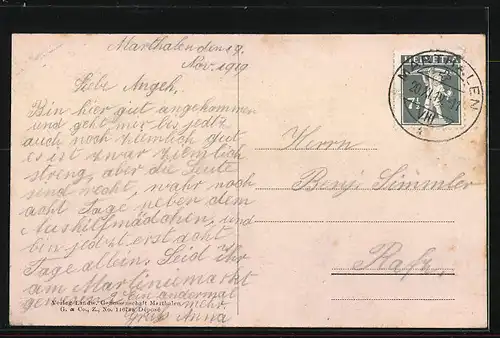 Marthalen den 19.
Nov. 1919
Liebe Angeh.
Bin hier gut angekommen
und geht mir bis jetzt
auch noch ziemlich gut
er ist zwar ziemlich
streng, aber die Leute
sind recht, wahr noch
acht Tage neben dem
Aushilfmädchen, und
bin jetzt erst acht
Tage allein. Seid Ihr
am Martinimarkt
gewesen? Ein andermal
mehr
Gruss Anna
Verlag Landw. Genossenschaft Marthalen
G. & Co., Z., No. Déposé
HELVETIA
7½
MARTHALEN
Herrn
Benj. Simmler
Rafz.